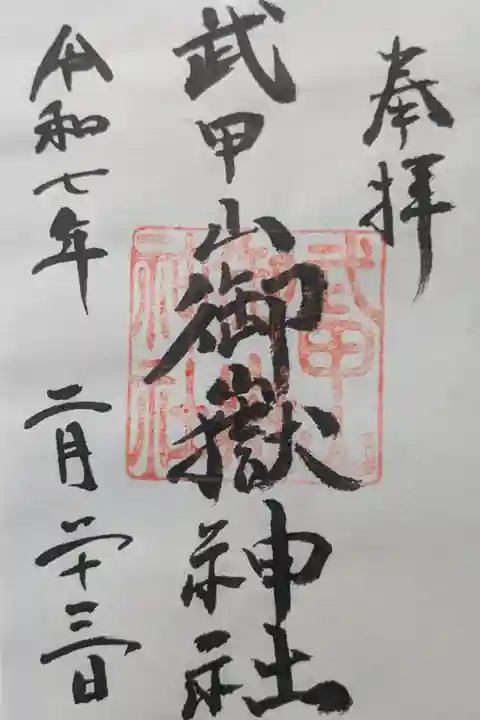 奉拝
武甲山御嶽神社
令和七年 二月二十三日
武甲山
神社